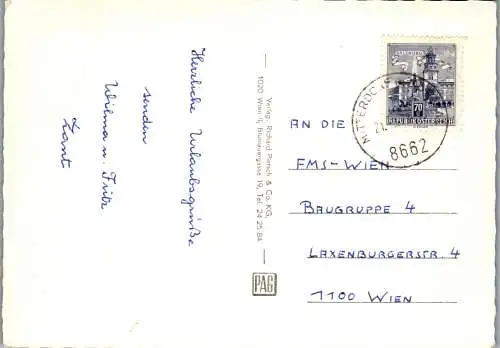 Herzliche Urlaubsgrüße
senden
Wilma u. Fritz
Verlag: Richard Pietsch & Co. KG,
1020 Wien II, Blumauergasse 19, Tel. 24 25 84
PAG
70
REPUBLIK ÖSTERREICH
8662
AN DIE
FMS-WIEN
BAUGRUPPE 4
LAXENBURGERSTR. 4
1100 WIEN